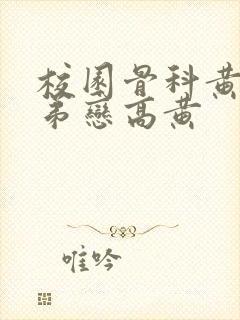 校園骨科黃
弟戀高黃
唯吟